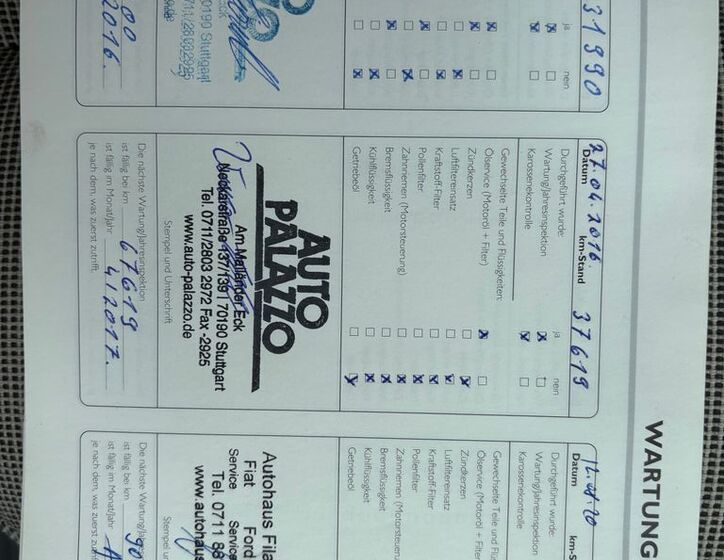 WARTUNG
31990
ja nein
2016.
70190 Stuttgart
0711/28032925
27.04.2016. 37619
Datum km-Stand
Durchgeführt wurde: ja nein
Wartung/Jahresinspektion
Karosseriekontrolle
Gewechselte Teile und Flüssigkeiten:
Ölservice (Motoröl + Filter)
Zündkerzen
Luftfiltereinsatz
Kraftstoff-Filter
Pollenfilter
Zahnriemen (Motorsteuerung)
Bremsflüssigkeit
Kühlflüssigkeit
Getriebeöl
AUTO
PALAZZO
Am Mailänder Eck
Neckarstraße 137/139 | 70190 Stuttgart
Tel. 0711/2803 2972 Fax -2925
www.auto-palazzo.de
Stempel und Unterschrift
Die nächste Wartung/Jahresinspektion
ist fällig bei km 67619
ist fällig im Monat/Jahr 4/2017.
je nach dem, was zuerst zutrifft.
Datum km-S
Durchgeführt wurde:
Wartung/Jahresinspektion
Karosseriekontrolle
Gewechselte Teile und Flüssigkeiten
Ölservice (Motoröl + Filter)
Zündkerzen
Luftfiltereinsatz
Kraftstoff-Filter
Pollenfilter
Zahnriemen (Motorsteuerun
Bremsflüssigkeit
Kühlflüssigkeit
Getriebeöl
Autohaus Filia
Fiat Ford
Service Service
Tel. 0711 88
www.autohaus
Stempel un
Die nächste Wartung/Jahresins
ist fällig bei km 90
ist fällig im Monat/Jahr
je nach dem, was zuerst zut